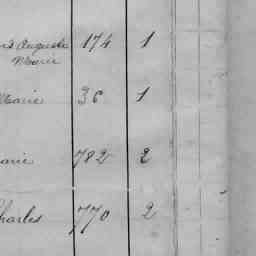 Auguste 174 1
Marie
Marie 36 1
arie 782 2
Charles 770 2